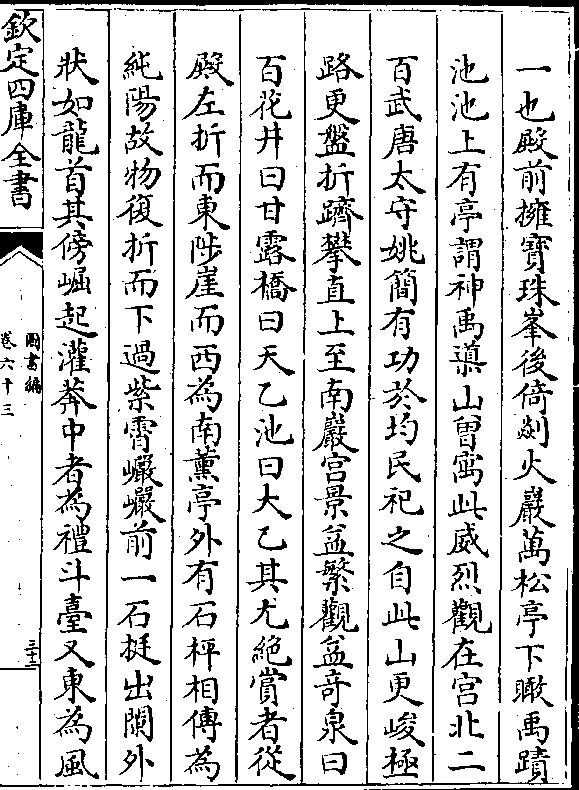 一也殿前擁寶珠峯後倚㷿火巖萬松亭下瞰禹蹟
池池上有亭謂神禹導山曽寓此威烈觀在宫北二
百武唐太守姚簡有功於均民祀之自此山更峻極
路更盤折躋攀直上至南巖宫景益繁觀益竒泉曰
百花井曰甘露橋曰天乙池曰大乙其尤絶賞者從
殿左折而東陟崖而西為南薰亭外有石枰相傳為
純陽故物復折而下過紫霄巘巘前一石挺出闌外
狀如龍首其傍崛起灌莽中者為禮斗臺又東為風
欽定四庫全書
圖書編
卷六十三
三十三